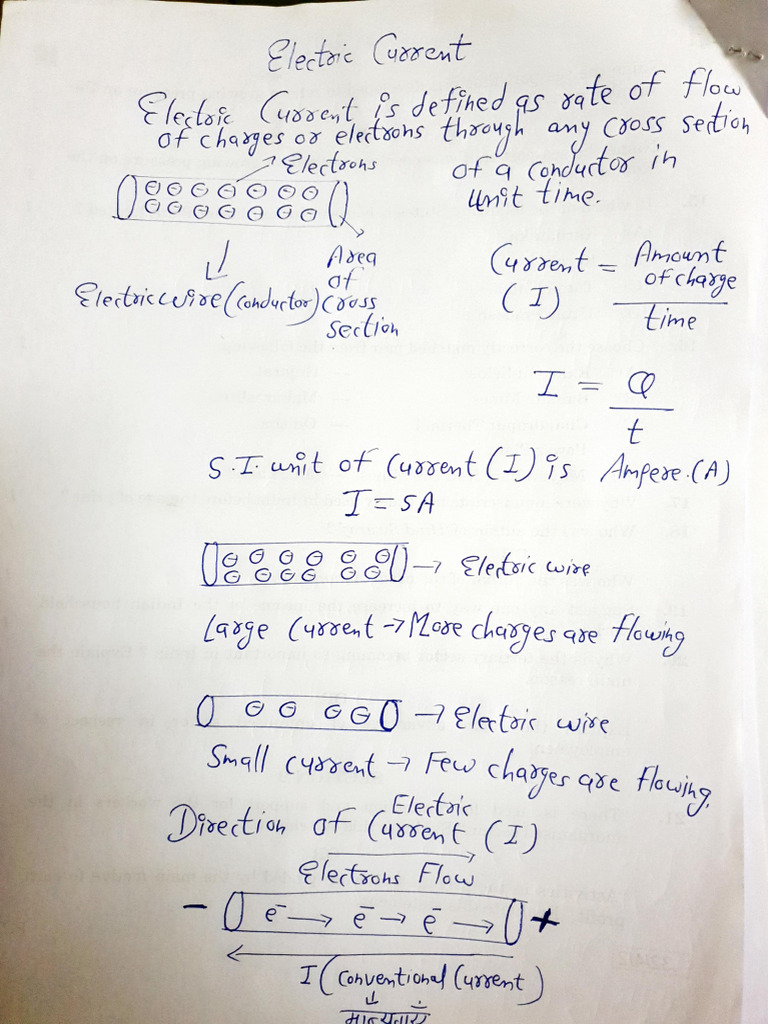 Electric Current
Electric Current is defined as rate of flow
of charges or electrons through any cross section
of a conductor in
unit time.
→ Electrons
⊖ ⊖ ⊖ ⊖ ⊖ ⊖ ⊖
⊖ ⊖ ⊖ ⊖ ⊖ ⊖ ⊖
Area
of
cross
section
Electric wire (conductor)
Current = Amount of charge
(I) time
I = Q
t
S.I. unit of Current (I) is Ampere.(A)
I = 5A
⊖ ⊖ ⊖ ⊖ ⊖ ⊖ → Electric wire
⊖ ⊖ ⊖ ⊖ ⊖ ⊖
Large Current → More charges are flowing
⊖ ⊖ ⊖ ⊖ → Electric wire
Small current → Few charges are flowing.
Electric
Direction of Current (I)
Electrons Flow
- e⁻ → e⁻ → e⁻ → +
I (Conventional Current)